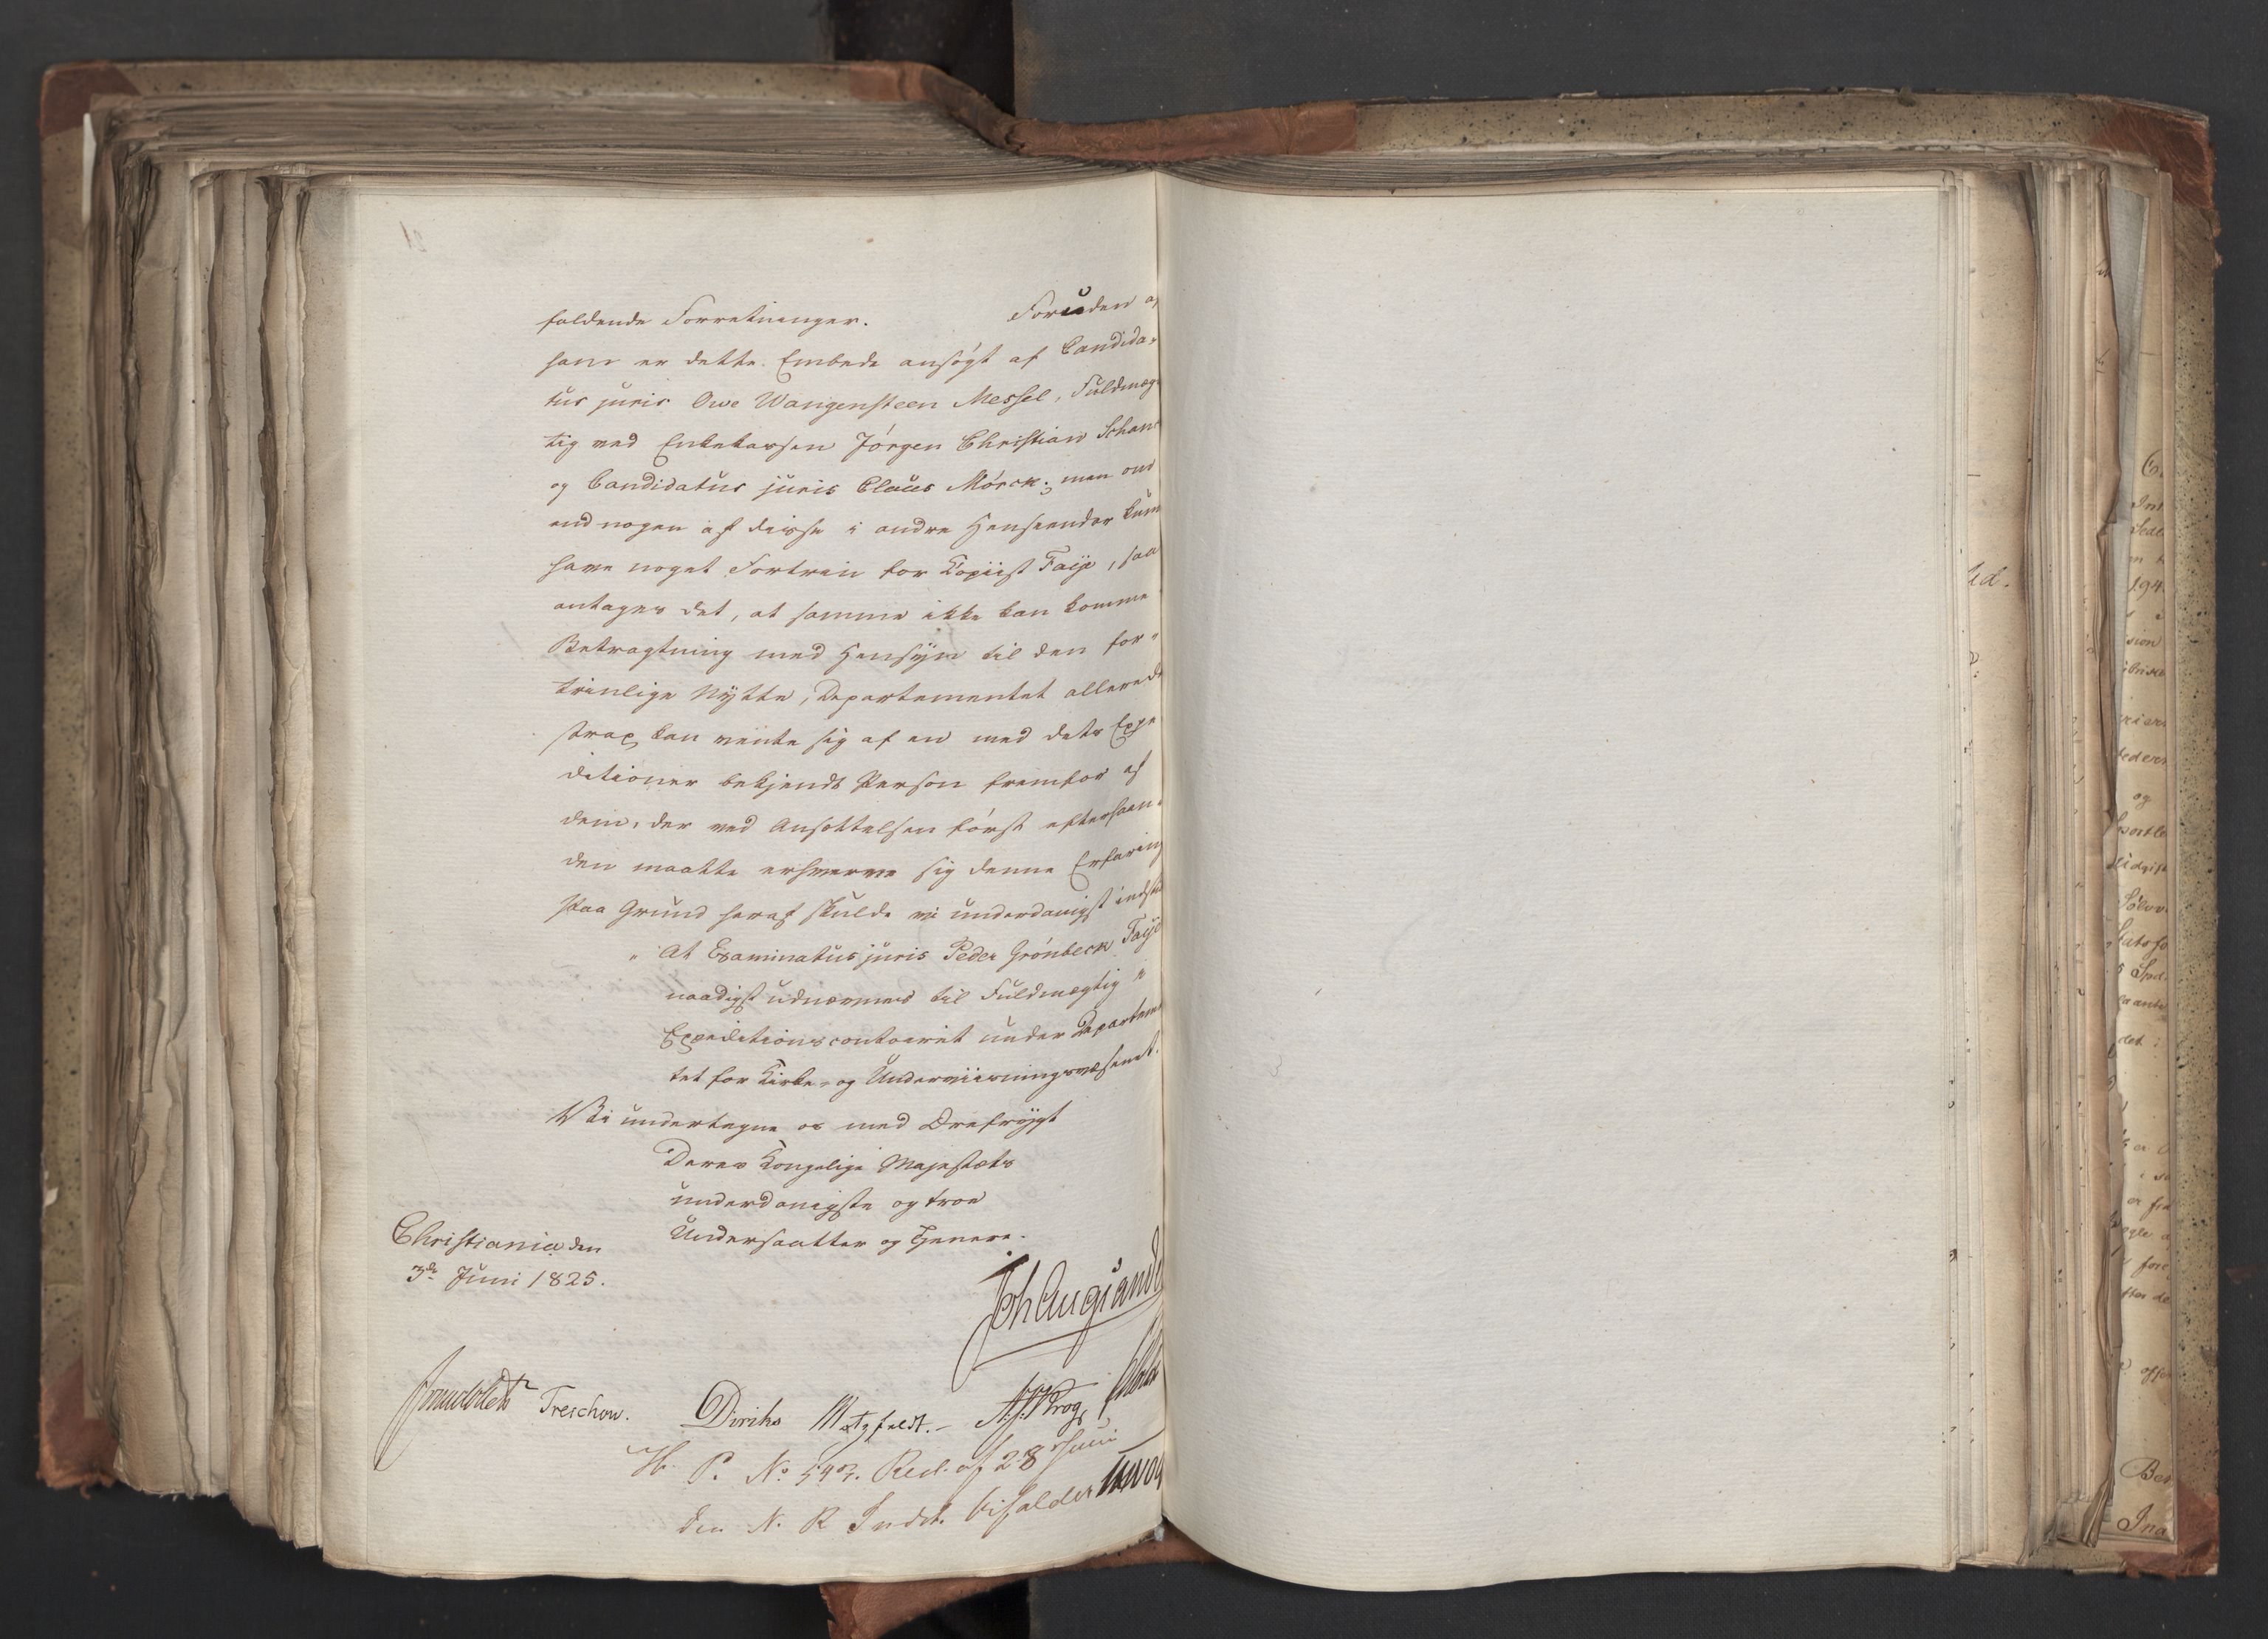 faldende Forretninger. Foruden af
ham er dette Embede ansøgt af Candida-
tus juris Owe Wangensteen Messel, Fuldmæg-
tig ved Enkekassen Jørgen Christian Schan
og Candidatus juris Claus Mørck; men om
end nogen af disse i andre Henseender kun
have noget Fortrin for Kopiist Faije, saa
antages det, at samme ikke kan komme
Betragtning med Hensyn til den for-
trinlige Nytte, Departementet allerede
strax kan vente sig af en med dets Expe
ditioner bekjendt Person fremfor af
dem, der ved Ansættelsen først efterhaan-
den maatte erhverve sig denne Erfaring
Paa Grund heraf skulde vi underdanigst indst
" At Examinatus juris Peder Grønbeck Faije
naadigst udnævnes til Fuldmægtig
Expeditionscontoiret under Departemen
tet for Kirke- og Underviisningsvæsenet.
Vi undertegne os med Ærefrygt
Deres Kongelige Majestæts
underdanigste og troe
Undersaatter og Tjenere.
Christiania den
3de Juni 1825.
Joh Aug Sande
Treschow. Diriks Motzfeldt. Krog
P. No 592. Res. af 28 Juni
den N. R Indst. bifaldes